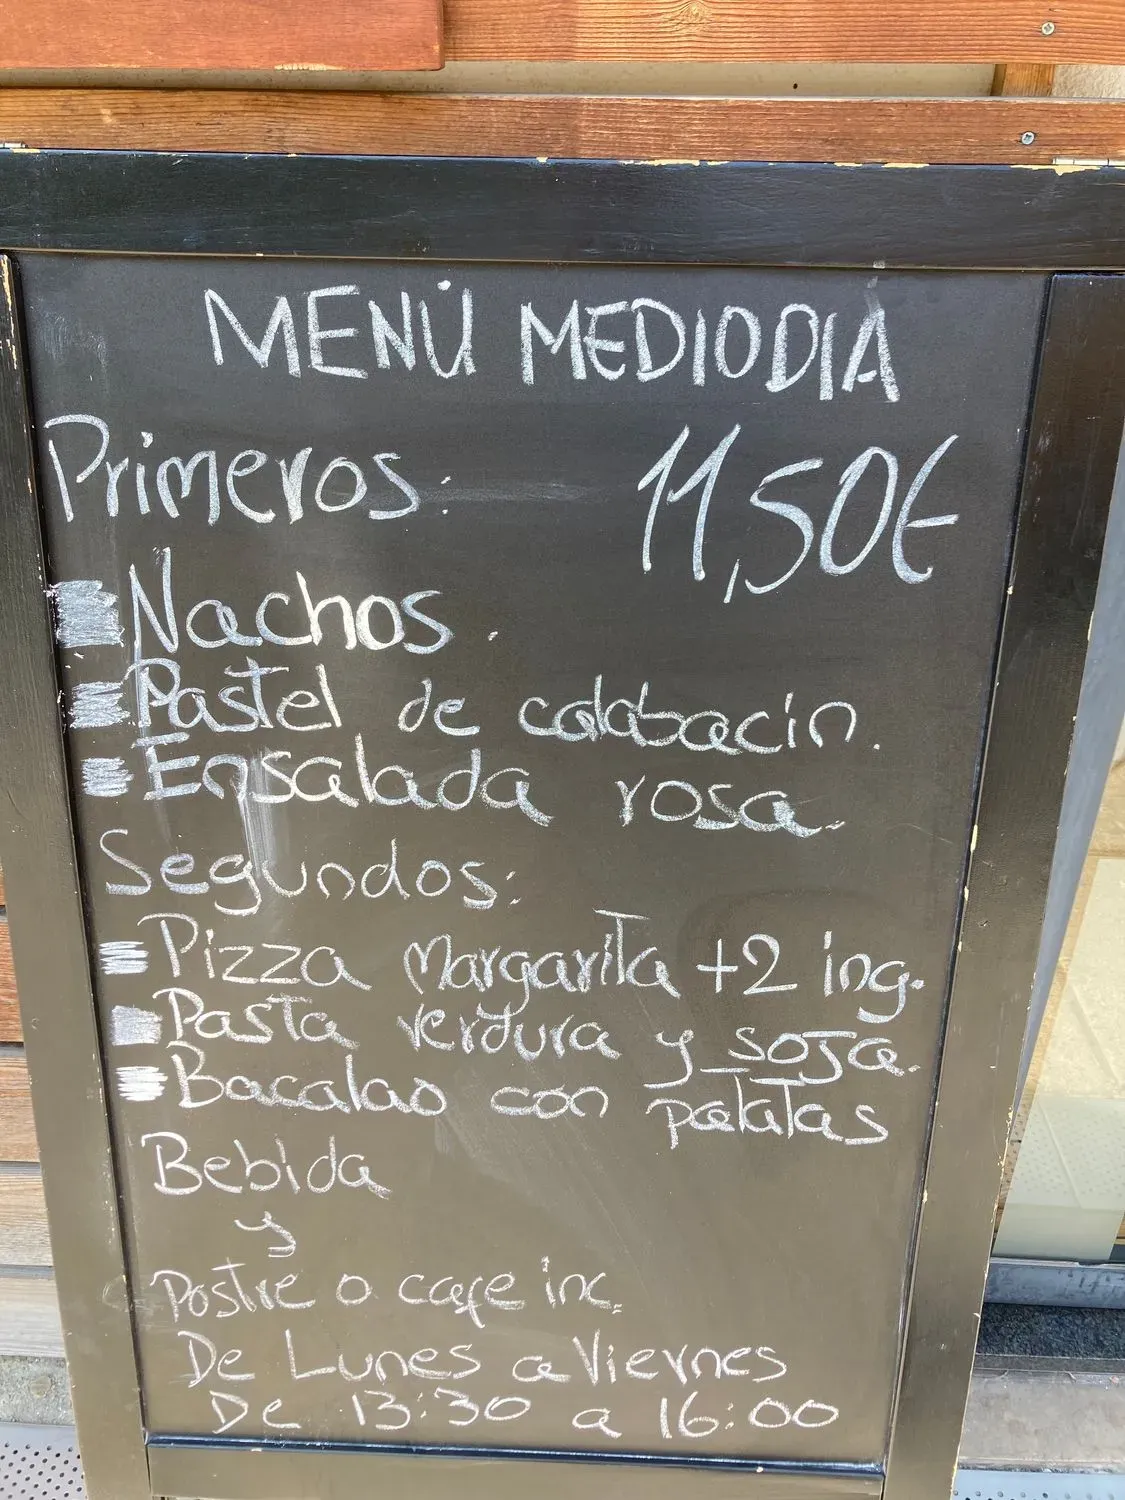 MENÚ MEDIODIA
Primeros: 11,50€
Nachos.
Pastel de calabacin.
Ensalada rosa.
Segundos:
Pizza Margarita +2 ing.
Pasta verdura y soja.
Bacalao con patatas
Bebida
y
Postre o cafe inc.
De Lunes a Viernes
De 13:30 a 16:00